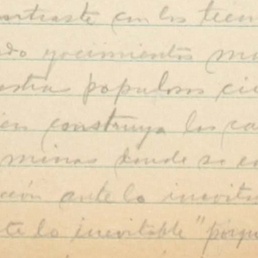 contraste con los tecn
do yacimientos m
estras populosas ci
ien construya las ca
minas donde se e
ción ante lo inevita
te lo inevitable "porqu